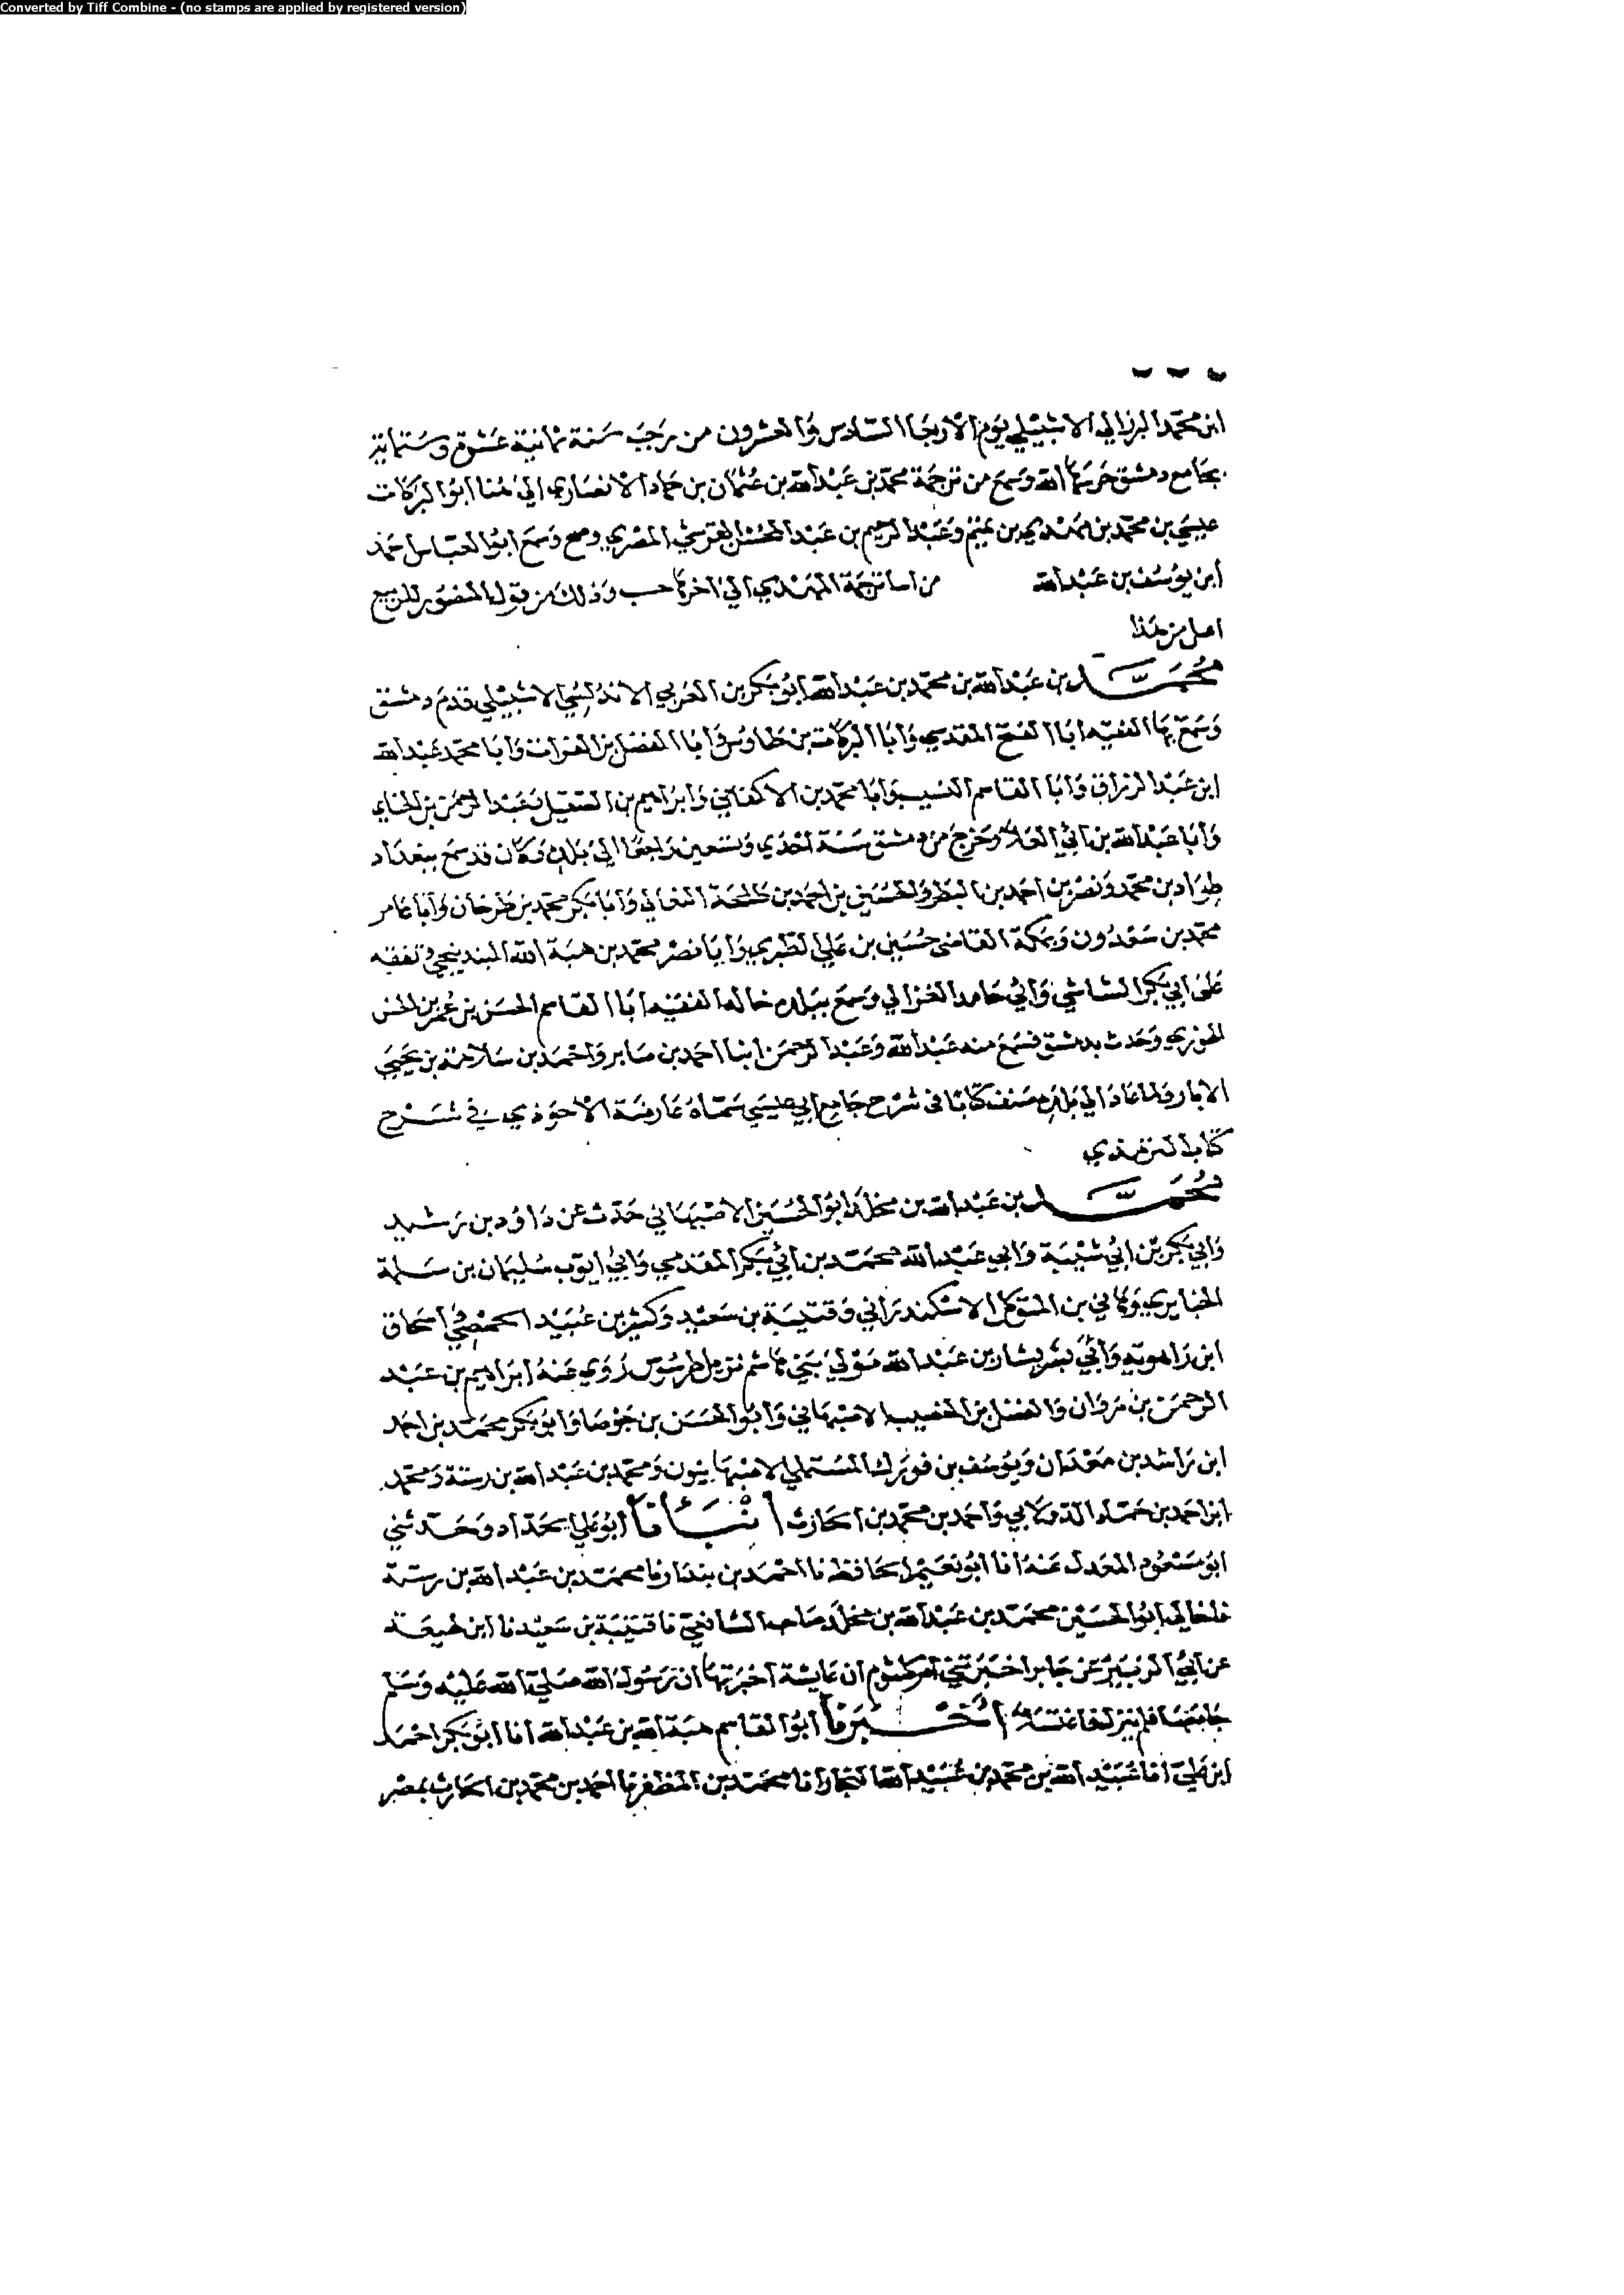 Converted by Tiff Combine - (no stamps are applied by registered version)
ابن محمد البرزالي الاشبيلي يوم الاربعا السادس والعشرون من رجب سنة ثمانية عشرة وستماية
بجامع دمشق حرسها الله وسمع من ترجمة محمد بن عبدالله بن عثمان بن حماد الانصاري الي هنا ابو البركات
عيسي بن محمد بن مهدي بن تميم وعبدالرحيم بن عبدالمحسن القرشي المصري وصح وسمع ابو العباس احمد
ابن يوسف بن عبدالله من اسا ترجمة المهدي الي اخرها حسب وذلك من قول المنصور للربيع
اهل من هذا
محمد بن عبدالله بن محمد بن عبدالله ابو بكر بن العربي الاندلسي الاشبيلي قدم دمشق
وسمع بها الفقيه ابا الفتح المقدسي وابا البركات بن طاوس وابا الفضل بن الفرات وابا محمد عبدالله
ابن عبدالرزاق وابا القاسم النسيب وابا محمد بن الاكفاني وابراهيم بن الصقيل وعبدالرحمن بن الحناي
وابا عبدالله بن ابي العلا وخرج من دمشق سنة احدي وتسعين راجعا الي بلده وكان قد سمع ببغداد
طراد بن محمد ونصر بن احمد بن البطر والحسين بن احمد بن طلحة النعالي وابا بكر محمد بن طرخان وابا عامر
محمد بن سعدون وبمكة القاضي حسين بن علي الطبري وابا نصر محمد بن هبة الله البندنيجي وتفقه
علي ابي بكر الشاشي وابي حامد الغزالي وسمع ببلده خاله الفقيه ابا القاسم الحسن بن عمر بن الحسن
الهوزني وحدث بدمشق فسمع منه عبدالله وعبدالرحمن ابنا احمد بن صابر واحمد بن سلامة بن يحيي
الابار ولما عاد الي بلده صنف كتابا في شرح جامع ابي عيسي سماه عارضة الاحوذي في شرح
كتاب الترمذي
محمد بن عبدالله بن مخلد ابو الحسين الاصبهاني حدث عن داود بن رشيد
وابي بكر بن ابي شيبة وابي عبدالله محمد بن ابي بكر المقدمي وابي ايوب سليمان بن سلمة
الخبايري وهاني بن المتوكل الاسكندراني وقتيبة بن سعيد وكثير بن عبيد الحمصي واسحاق
ابن راهويه وابي بشر بشار بن عبدالله مولي بني هاشم نزيل طرسوس روي عنه ابراهيم بن عبد
الرحمن بن مروان والفضل بن الخصيب الاصبهاني وابو الحسن بن جوصا وابو بكر محمد بن احمد
ابن راشد بن معدان ويوسف بن فورك المستملي الاصبهانيون ومحمد بن عبدالله بن رستة ومحمد
ابن احمد بن حماد الدولابي واحمد بن محمد بن الحارث انبأنا ابو علي الحداد وحدثني
ابو مسعود المعدل عنه انا ابو نعيم الحافظ نا احمد بن بندار نا محمد بن عبدالله بن رستة
نا خالي ابو الحسين محمد بن عبدالله بن مخلد صاحب الشافعي نا قتيبة بن سعيد نا ابن لهيعة
عن ابي الزبير عن جابر اخبرتني ام كلثوم ان عايشة اخبرتها ان رسول الله صلي الله عليه وسلم
جامعها فلم ينزل فاغتسلا اخبرنا ابو القاسم هبة الله بن عبدالله انا ابو بكر احمد
ابن علي انا عبيد الله بن محمد بن عبيد الله النجار انا محمد بن المظفر نا احمد بن محمد بن الحارث بمصر